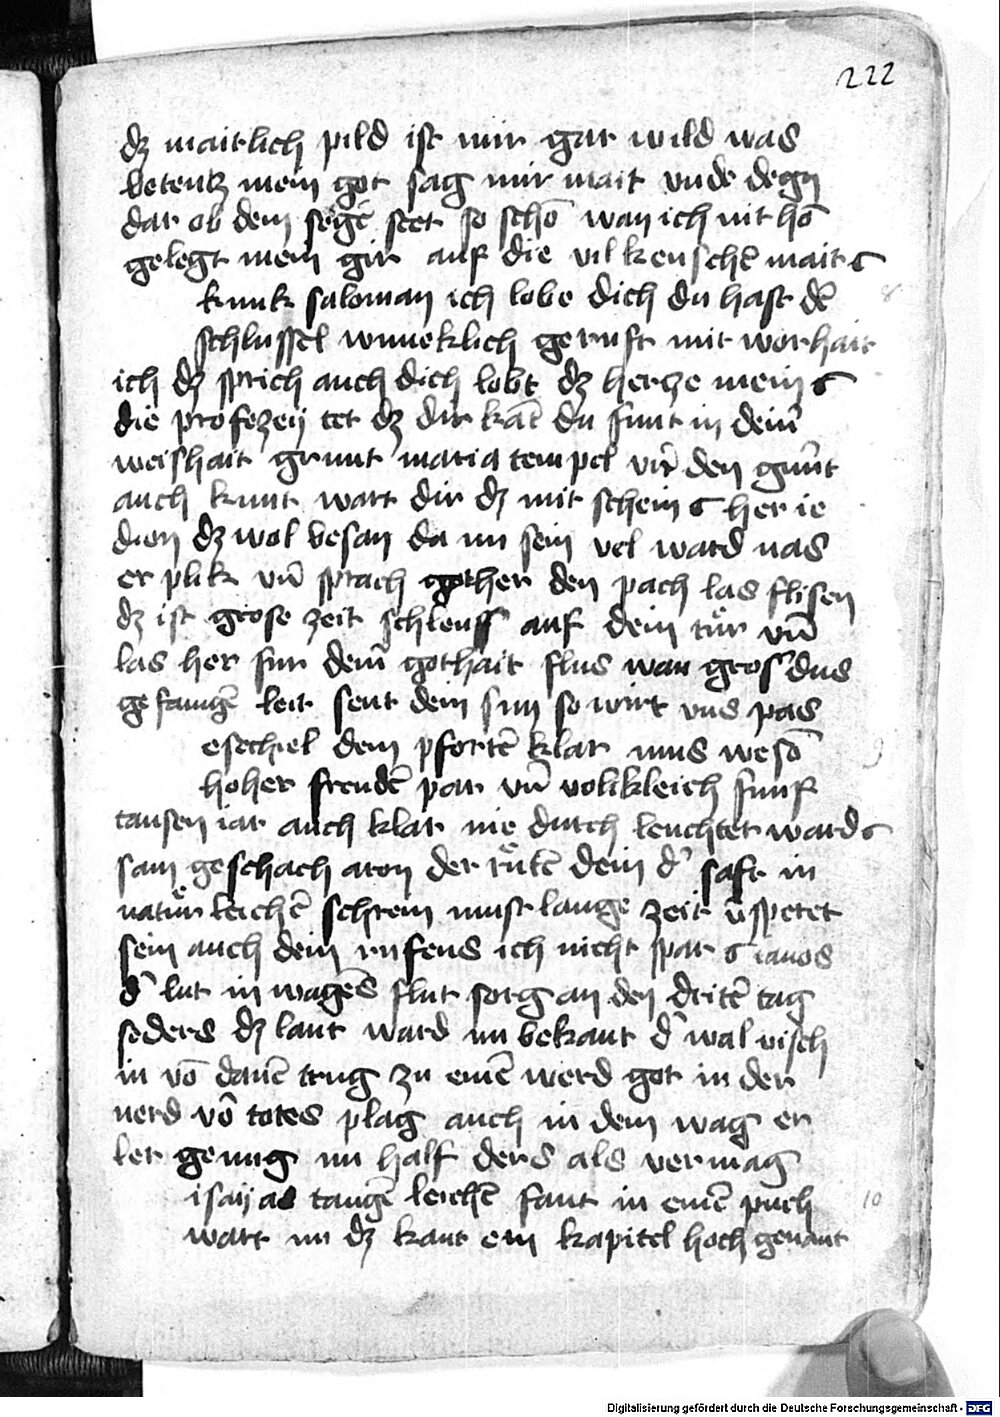 222
dz maitlich pild ist mir gar wild was
betentz mein got sag mir mait vnde degn
dar ob dem segē stet so schō wan ich nit hō
gelegt mein gir auf die vil kenschē mait
kunk saloman ich lobe dich du hast dē
8
schlussel wuneklich geruft mit worhait
ich dz sprich auch dich lobt dz hercze mein
die profezeÿ tet dz dir kāt du funt in deim̄
weishait grunt maria tempel vn̄ den gun̄t
auch kunt wart dir dz mit schein her ie
dion dz wol besan da im sein vel ward nas
er plik vn̄ sprach got her den pach las flisen
dz ist grose zeit schleuss auf dein tur vn̄
las her fur dein̄ gothait flus wan gros dus
gefangē leit sent dein sun so wirt vns pas
esechiel dein pfortē klar mus wesō
9
hoher freudē par vn̄ volikleich funf
tausen iar auch klar nie durch leuchtet ward
sam geschach aron der rutē dein d' saft in
natur leichē schrein must lange zeit v̄spetet
sein auch dein rufens ich nicht spar ianos
d' lut in wagēs flut sorg an den dritē tag
seders dz laut ward im bekant d' wal visch
in vō danē trug zu einē werd got in der
nerd vō totes plag auch in dem wag er
let genug im half ders als vermag
isaÿas taugē leichē fant in einē puch
10
wart im dz kant ein kapitel hoch genant
Digitalisierung gefördert durch die Deutsche Forschungsgemeinschaft - DFG